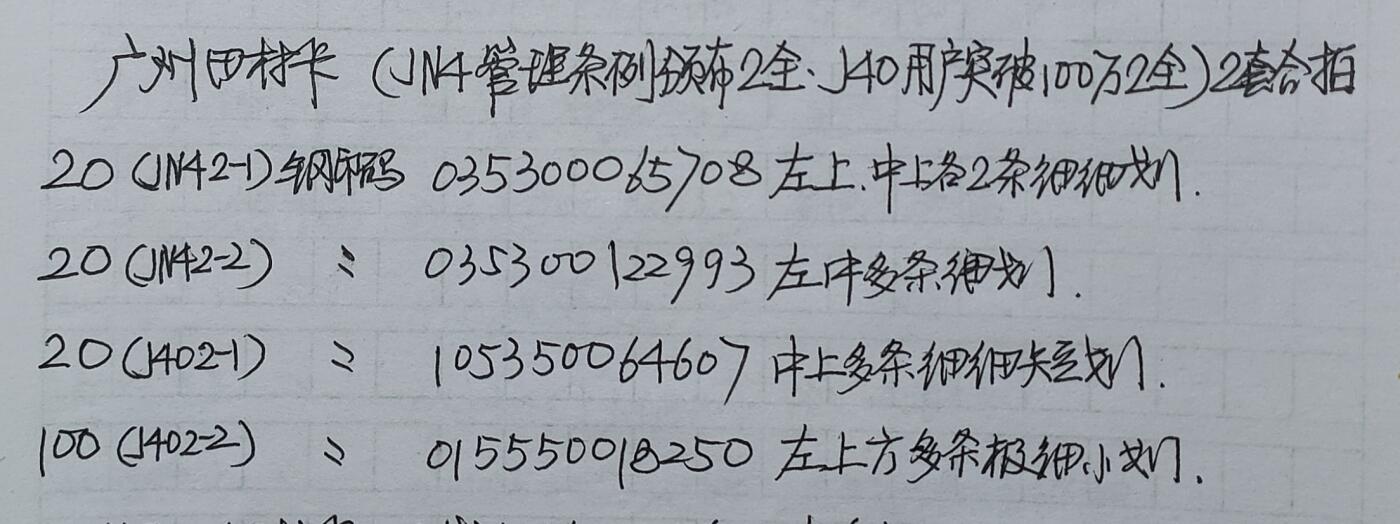 广州田村卡(JN4管理条例颁布2全、J40用户突破100万2全)2套合拍
20(JN42-1)钢印码 035300065708左上.中上各2条细细划.
20(JN42-2) 〃 035300122993左中多条细划.
20(J402-1) 〃 105350064607中上多条细细短划.
100(J402-2) 〃 015550018250左上方多条极细小划.